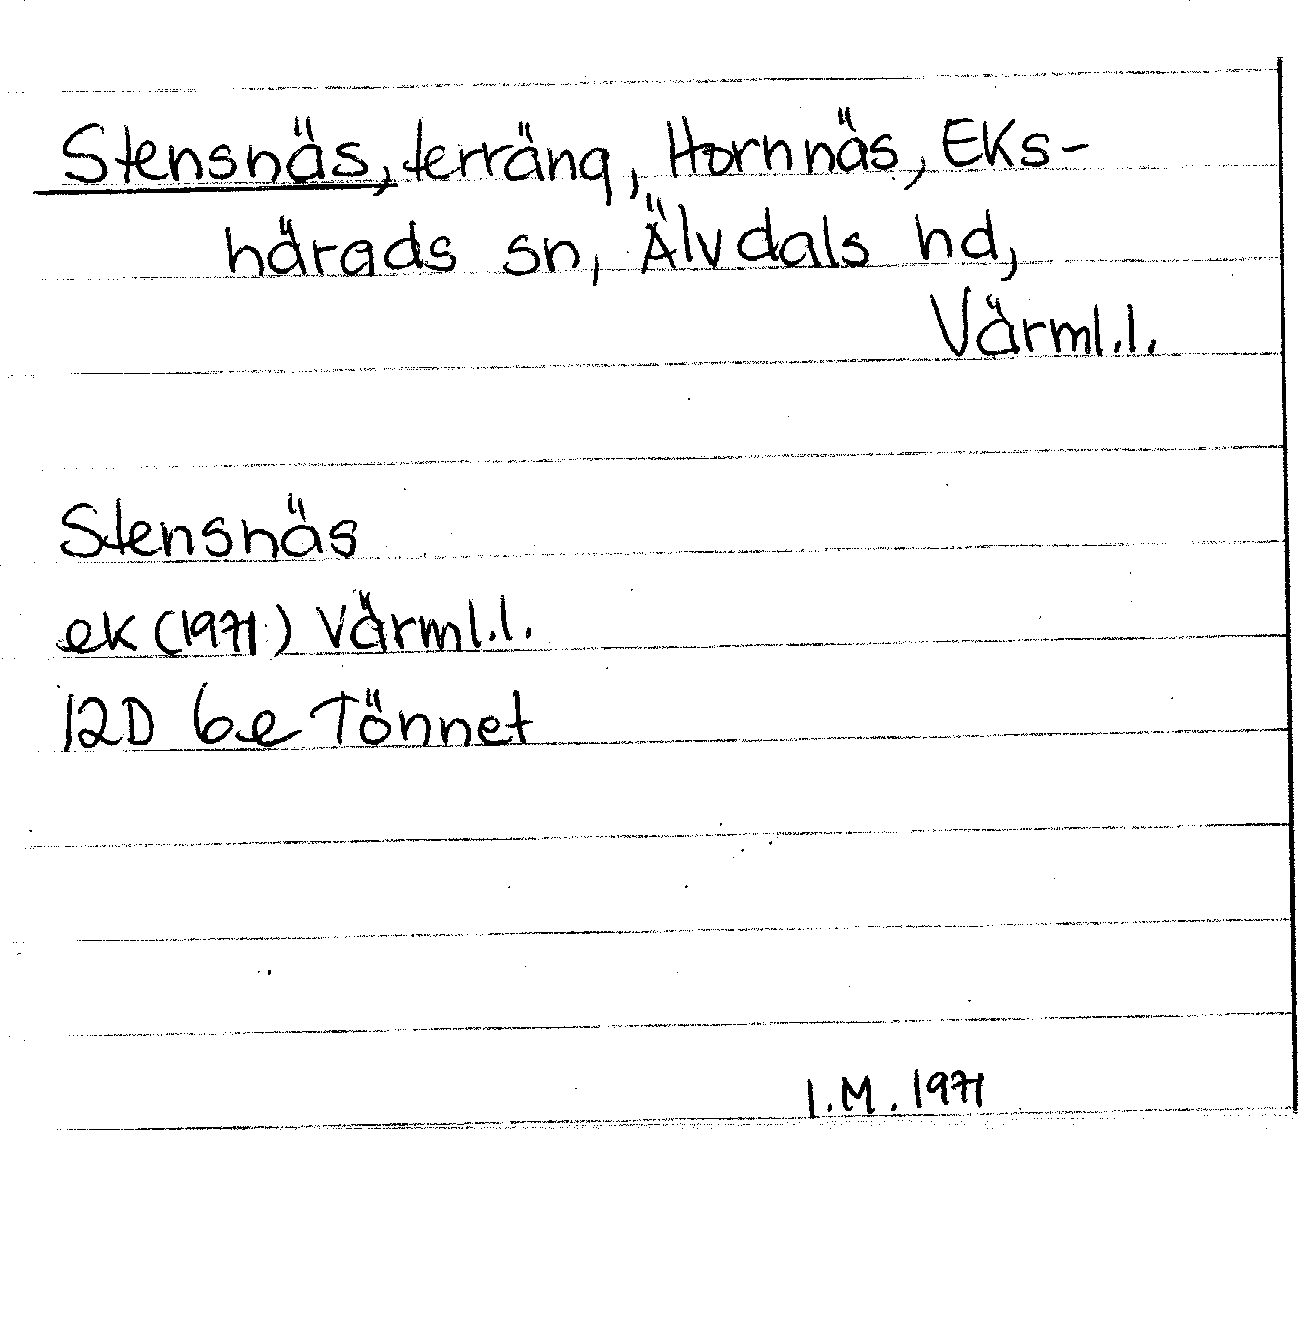 Stensnäs, terräng, Hornnäs, Eks-
härads sn, Älvdals hd,
Värml.l.
Stensnäs
ek (1971) Värml.l.
12D 6e Tönnet
I.M. 1971